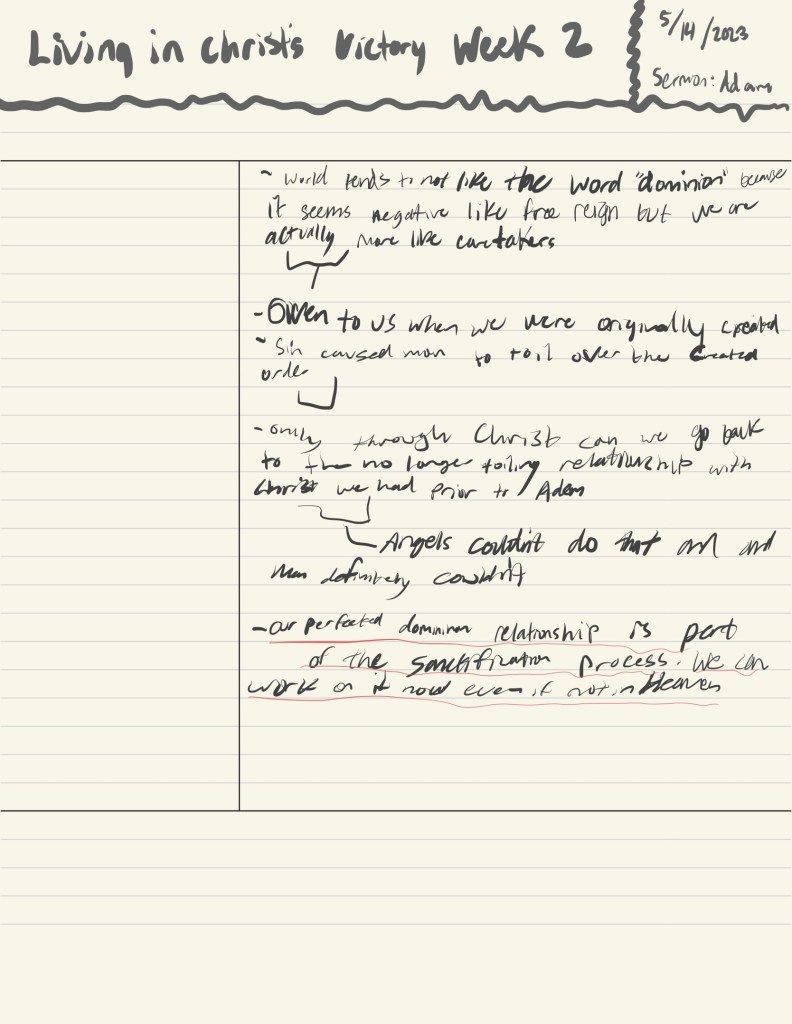 Living in Christ's Victory Week 2
5/14/2023
Sermon: Adam
~ World tends to not like the word "dominion" because
it seems negative like free reign but we are
actually more like caretakers
- Given to us when we were originally created
~ Sin caused man to toil over the created
order
- only through Christ can we go back
to the no longer toiling relationship with
Christ we had prior to Adam
Angels couldn't do that and
Man definitely couldn't
- our perfected dominion relationship is part
of the sanctification process. We can
work on it now even if not in Heaven